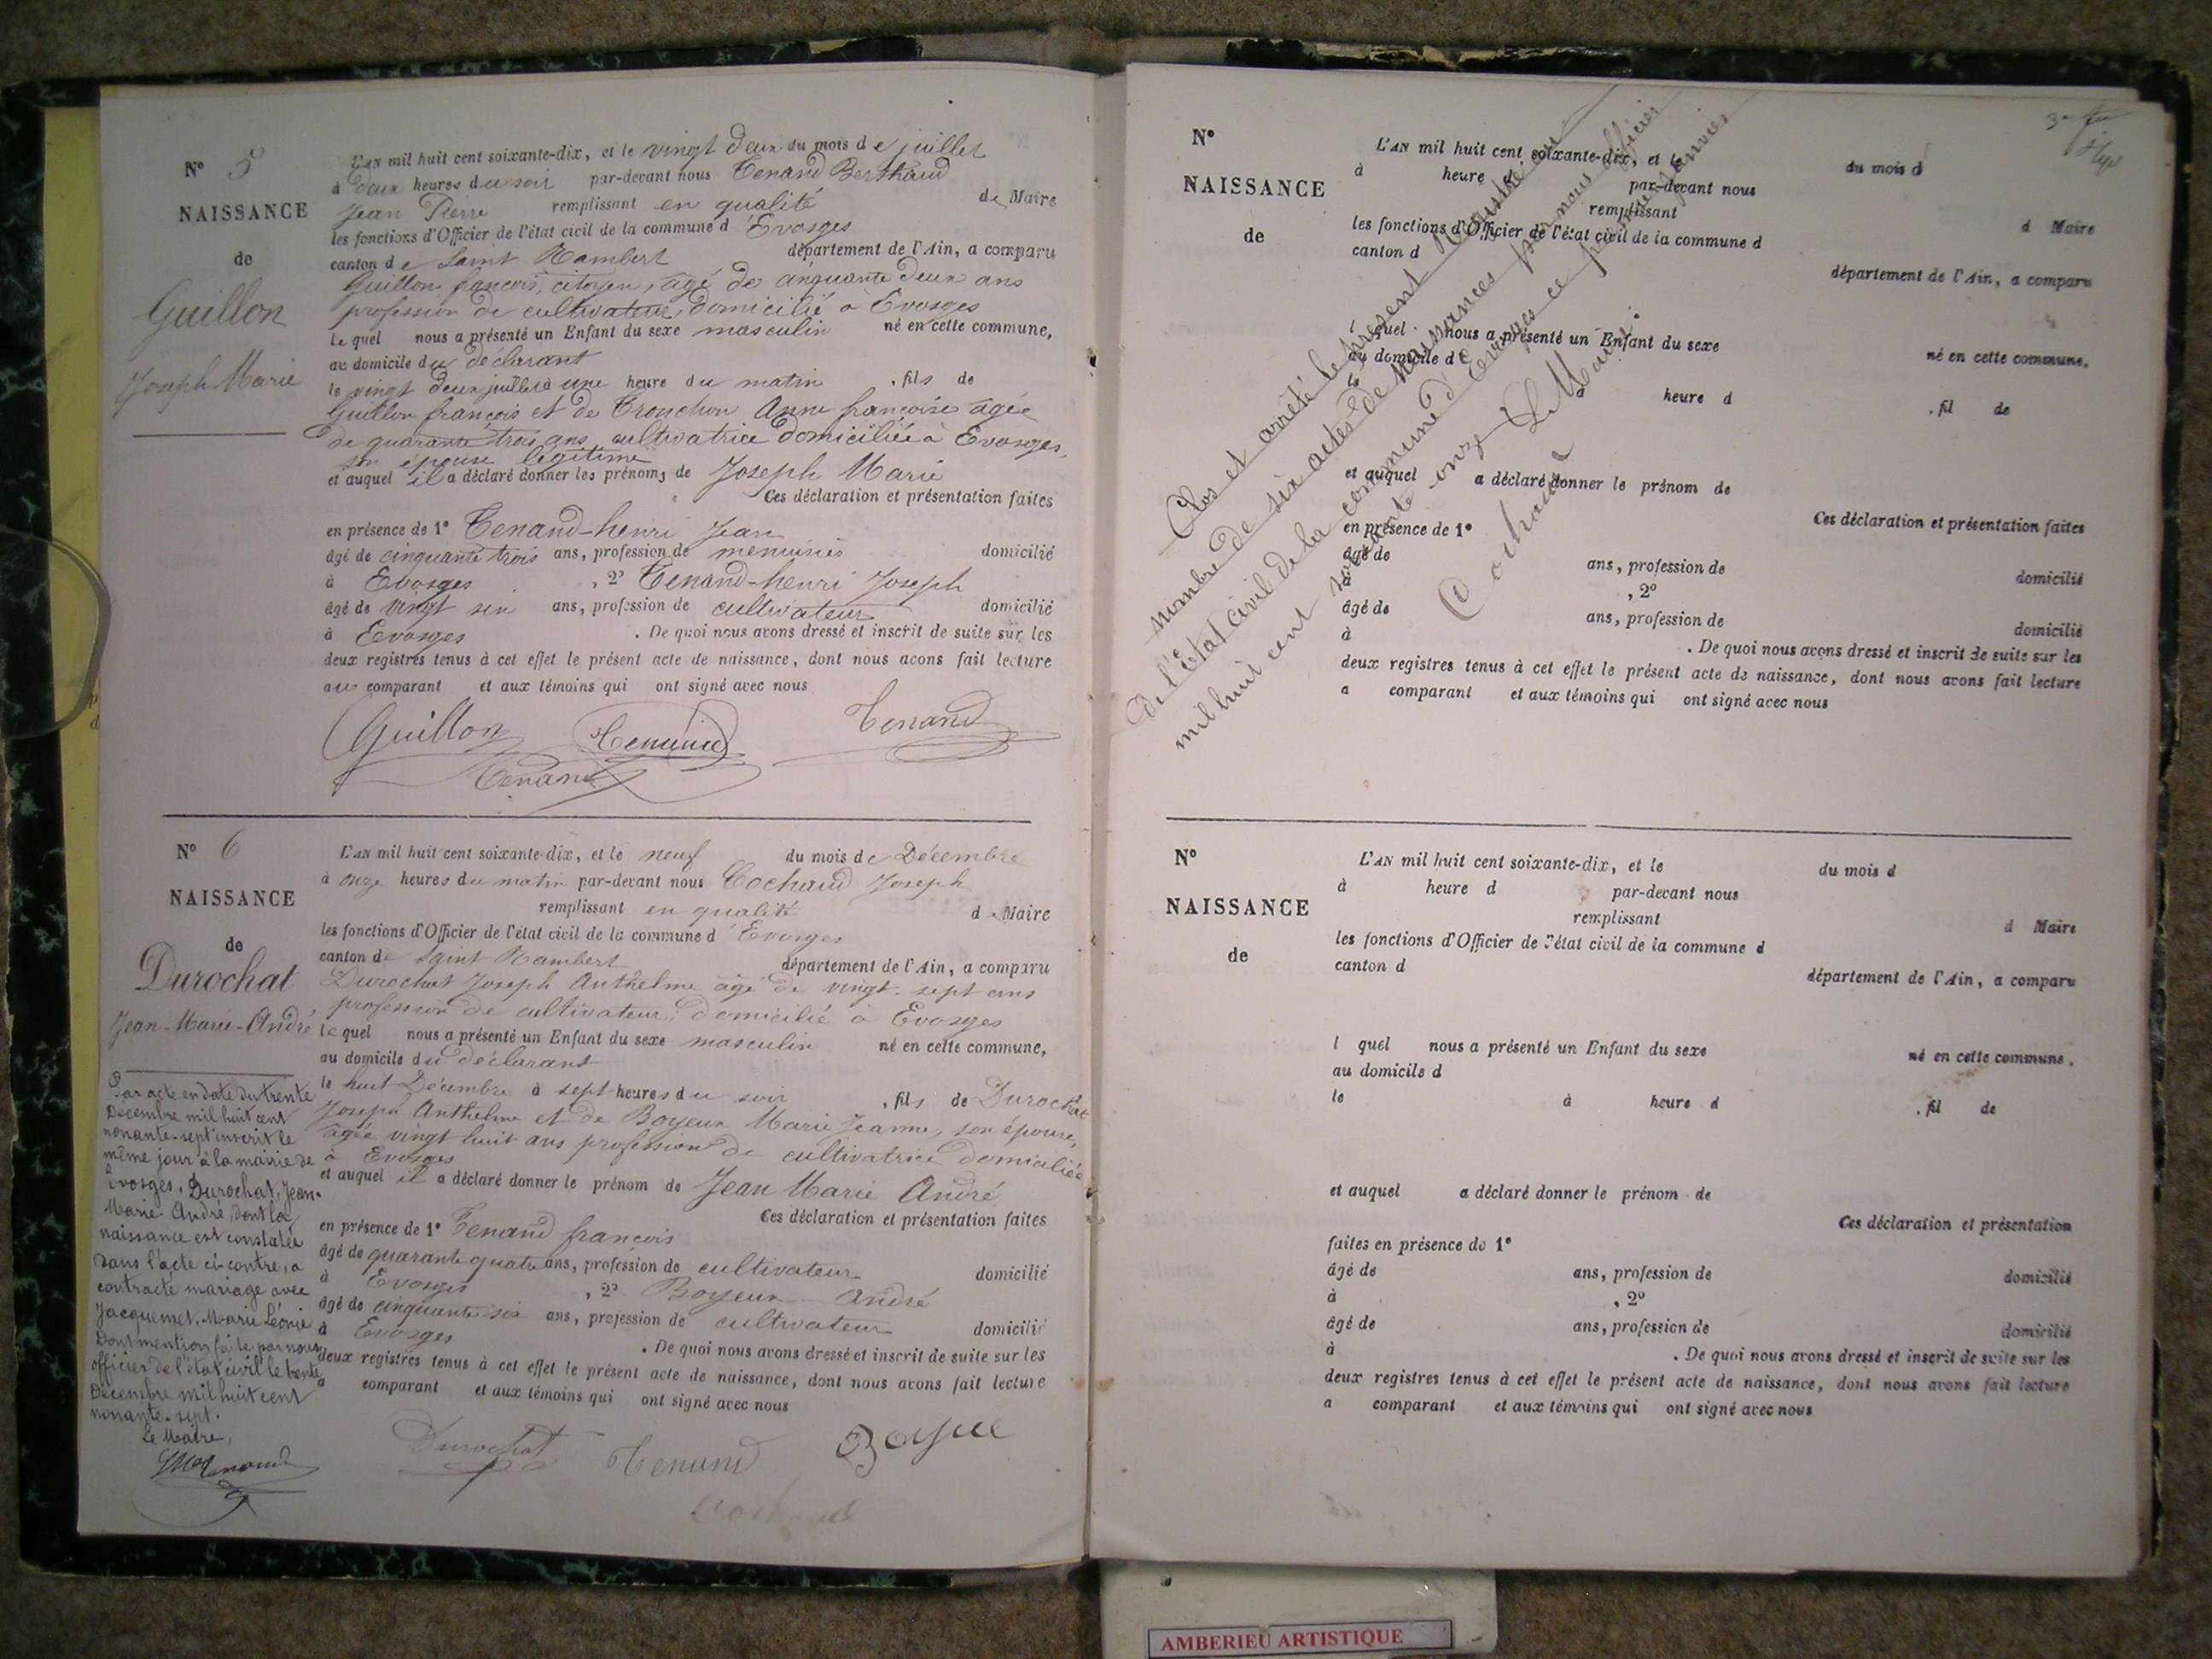 N° 5
NAISSANCE
de
Guillon
Joseph Marie
L'AN mil huit cent soixante-dix, et le vingt deux du mois de juillet
à Deux heures du soir par-devant nous Tenand Berthaud
Jean Pierre remplissant en qualité de Maire
les fonctions d'Officier de l'état civil de la commune d'Evosges
canton de Saint Rambert département de l'Ain, a comparu
Guillon françois, citoyen, âgé de cinquante deux ans
profession de cultivateur, domicilié à Evosges
le quel nous a présenté un Enfant du sexe masculin né en cette commune,
au domicile du déclarant
le vingt deux juillet à une heure du matin , fils de
Guillon françois et de Tronchon Anne françoise âgée
de quarante trois ans, cultivatrice domiciliée à Evosges,
son épouse légitime
et auquel il a déclaré donner les prénoms de Joseph Marie
Ces déclaration et présentation faites
en présence de 1° Tenand-henri Jean
âgé de cinquante trois ans, profession de menuisier domicilié
à Evosges , 2° Tenand-henri Joseph
âgé de vingt six ans, profession de cultivateur domicilié
à Evosges . De quoi nous avons dressé et inscrit de suite sur les
deux registres tenus à cet effet le présent acte de naissance, dont nous avons fait lecture
au comparant et aux témoins qui ont signé avec nous
Guillon Tenand Tenand
Tenand
N° 6
NAISSANCE
de
Durochat
Jean-Marie-André
L'AN mil huit cent soixante-dix, et le neuf du mois de Décembre
à onze heures du matin par-devant nous Cochaud Joseph
remplissant en qualité d Maire
les fonctions d'Officier de l'état civil de la commune d'Evosges
canton de Saint Rambert département de l'Ain, a comparu
Durochat Joseph Anthelme âgé de vingt-sept ans
profession de cultivateur, domicilié à Evosges
le quel nous a présenté un Enfant du sexe masculin né en cette commune,
au domicile du déclarant
le huit Décembre à sept heures du soir , fils de Durochat
Joseph Anthelme et de Boyeux Marie Jeanne, son épouse,
âgée vingt huit ans profession de cultivatrice domiciliée
à Evosges
et auquel il a déclaré donner le prénom de Jean Marie André
Ces déclaration et présentation faites
en présence de 1° Tenand françois
âgé de quarante quatre ans, profession de cultivateur domicilié
à Evosges , 2° Boyeux André
âgé de cinquante six ans, profession de cultivateur domicilié
à Evosges . De quoi nous avons dressé et inscrit de suite sur les
deux registres tenus à cet effet le présent acte de naissance, dont nous avons fait lecture
a comparant et aux témoins qui ont signé avec nous
Durochat Tenand
Par acte en date du trente
Décembre mil huit cent
nonante-sept inscrit le
même jour à la mairie de
Evosges, Durochat, Jean-
Marie-André, dont la
naissance est constatée
dans l'acte ci-contre, a
contracté mariage avec
Jacquemet, Marie Léonie
Dont mention faite par nous
officier de l'état civil le trente
Décembre mil huit cent
nonante-sept.
Le Maire,
N°
NAISSANCE
de
L'AN mil huit cent soixante-dix, et le du mois d
à heure d par-devant nous
remplissant d Maire
les fonctions d'Officier de l'état civil de la commune d
canton d département de l'Ain, a comparu
l quel nous a présenté un Enfant du sexe né en cette commune,
au domicile d
le à heure d , fil de
et auquel a déclaré donner le prénom de
Ces déclaration et présentation faites
en présence de 1°
âgé de ans, profession de domicilié
à , 2°
âgé de ans, profession de domicilié
à . De quoi nous avons dressé et inscrit de suite sur les
deux registres tenus à cet effet le présent acte de naissance, dont nous avons fait lecture
a comparant et aux témoins qui ont signé avec nous
Clos et arrêté le présent Registre au
nombre de six actes de Naissances par nous officier
de l'état civil de la commune d'Evosges ce premier janvier
mil huit cent soixante onze Le Maire
Cochaud
N°
NAISSANCE
de
L'AN mil huit cent soixante-dix, et le du mois d
à heure d par-devant nous
remplissant d Maire
les fonctions d'Officier de l'état civil de la commune d
canton d département de l'Ain, a comparu
l quel nous a présenté un Enfant du sexe né en cette commune,
au domicile d
le à heure d , fil de
et auquel a déclaré donner le prénom de
Ces déclaration et présentation
faites en présence de 1°
âgé de ans, profession de domicilié
à , 2°
âgé de ans, profession de domicilié
à . De quoi nous avons dressé et inscrit de suite sur les
deux registres tenus à cet effet le présent acte de naissance, dont nous avons fait lecture
a comparant et aux témoins qui ont signé avec nous
AMBERIEU ARTISTIQUE